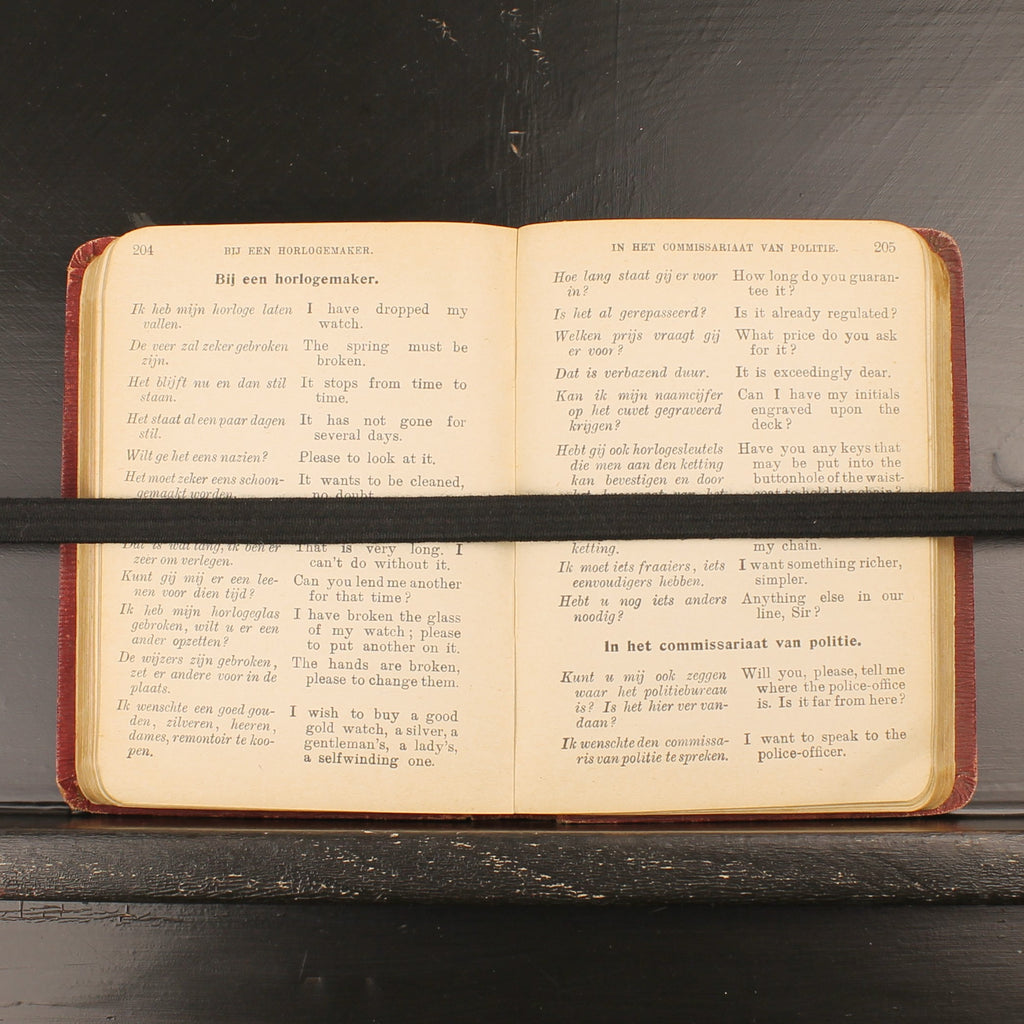 204 BIJ EEN HORLOGEMAKER.
Bij een horlogemaker.
Ik heb mijn horloge laten
vallen.
I have dropped my
watch.
De veer zal zeker gebroken
zijn.
The spring must be
broken.
Het blijft nu en dan stil
staan.
It stops from time to
time.
Het staat al een paar dagen
stil.
It has not gone for
several days.
Wilt ge het eens nazien?
Please to look at it.
Het moet zeker eens schoon-
gemaakt worden.
It wants to be cleaned,
no doubt.
Dat is wat lang, ik ben er
zeer om verlegen.
That is very long. I
can't do without it.
Kunt gij mij er een lee-
nen voor dien tijd?
Can you lend me another
for that time?
Ik heb mijn horlogeglas
gebroken, wilt u er een
ander opzetten?
I have broken the glass
of my watch; please
to put another on it.
De wijzers zijn gebroken,
zet er andere voor in de
plaats.
The hands are broken,
please to change them.
Ik wenschte een goed gou-
den, zilveren, heeren,
dames, remontoir te koo-
pen.
I wish to buy a good
gold watch, a silver, a
gentleman's, a lady's,
a selfwinding one.
IN HET COMMISSARIAAT VAN POLITIE. 205
Hoe lang staat gij er voor
in?
How long do you guaran-
tee it?
Is het al gerepasseerd?
Is it already regulated?
Welken prijs vraagt gij
er voor?
What price do you ask
for it?
Dat is verbazend duur.
It is exceedingly dear.
Kan ik mijn naamcijfer
op het cuvet gegraveerd
krijgen?
Can I have my initials
engraved upon the
deck?
Hebt gij ook horlogesleutels
die men aan den ketting
kan bevestigen en door
het knoopsgat van het
Have you any keys that
may be put into the
buttonhole of the waist-
coat to hold the chain?
ketting.
my chain.
Ik moet iets fraaiers, iets
eenvoudigers hebben.
I want something richer,
simpler.
Hebt u nog iets anders
noodig?
Anything else in our
line, Sir?
In het commissariaat van politie.
Kunt u mij ook zeggen
waar het politiebureau
is? Is het hier ver van-
daan?
Will you, please, tell me
where the police-office
is. Is it far from here?
Ik wenschte den commissa-
ris van politie te spreken.
I want to speak to the
police-officer.